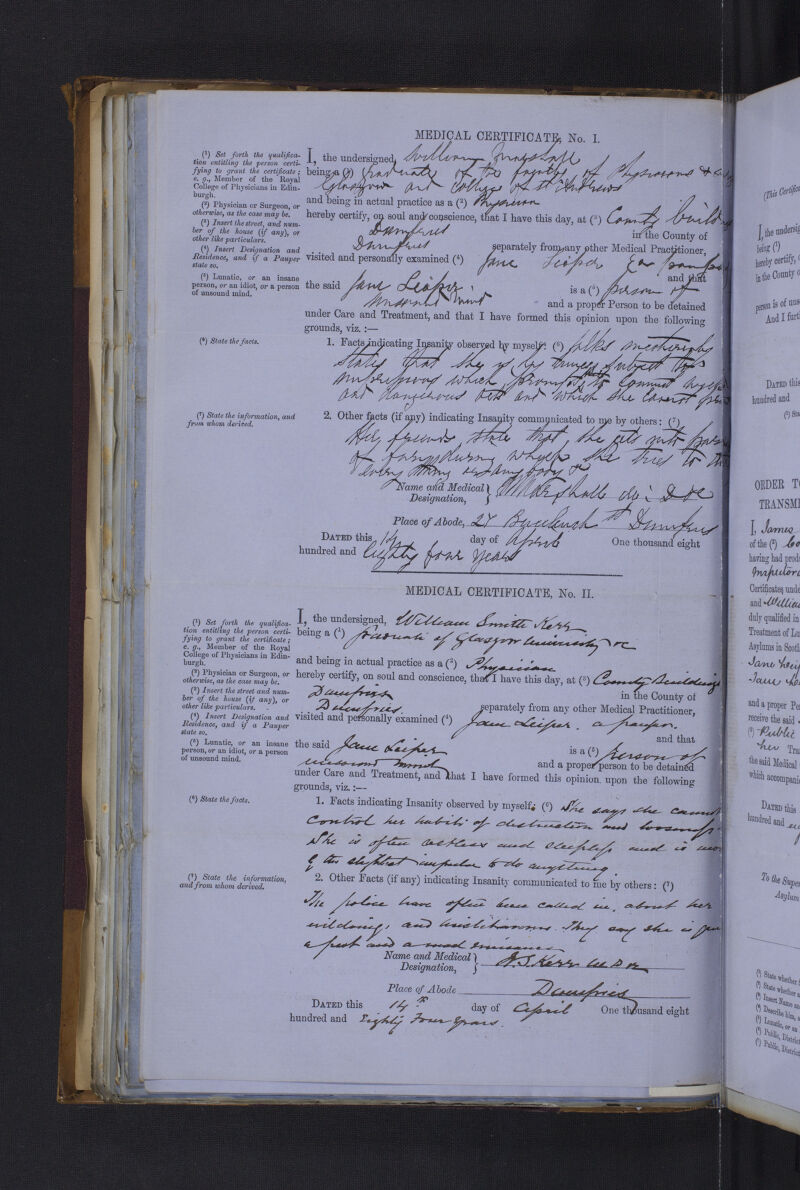 MEDICAL CERTIFICATE, No. I.
(¹) Set forth the qualifica-
tion entitling the person certi-
fying to grant the certificate;
e. g., Member of the Royal
College of Physicians in Edin-
burgh.
(²) Physician or Surgeon, or
otherwise, as the case may be.
(³) Insert the street, and num-
ber of the house (if any), or
other like particulars.
(⁴) Insert Designation and
Residence, and if a Pauper
state so.
(⁵) Lunatic, or an insane
person, or an idiot, or a person
of unsound mind.
I, the undersigned, William Marshall
being a (¹) graduate of the faculty of Physicians &
Glasgow and College of St Andrews
and being in actual practice as a (²) Physician
hereby certify, on soul and conscience, that I have this day, at (³) County build
Dumfries in the County of
Dumfries separately from any other Medical Practitioner,
visited and personally examined (⁴) Jane Leiper
and that
the said Jane Leiper is a (⁵) person of
unsound mind and a proper Person to be detained
under Care and Treatment, and that I have formed this opinion upon the following
grounds, viz. :—
(⁶) State the facts.
1. Facts indicating Insanity observed by myself: (⁶) talks incoherently
states that she is
impressions which to commit
and dangerous acts and which she cannot
(⁷) State the information, and
from whom derived.
2. Other facts (if any) indicating Insanity communicated to me by others: (⁷)
Her friends state that she gets into
of she tries to
every thing and any body
Name and Medical Designation, Marshall
Place of Abode, 27 Buccleuch St Dumfries
DATED this day of April One thousand eight
hundred and Eighty four years
MEDICAL CERTIFICATE, No. II.
(¹) Set forth the qualifica-
tion entitling the person certi-
fying to grant the certificate;
e. g., Member of the Royal
College of Physicians in Edin-
burgh.
(²) Physician or Surgeon, or
otherwise, as the case may be.
(³) Insert the street and num-
ber of the house (if any), or
other like particulars.
(⁴) Insert Designation and
Residence, and if a Pauper
state so.
(⁵) Lunatic, or an insane
person, or an idiot, or a person
of unsound mind.
I, the undersigned, William Smith Kerr
being a (¹) graduate of Glasgow University &c
and being in actual practice as a (²) Physician
hereby certify, on soul and conscience, that I have this day, at (³) County Buildings
Dumfries in the County of
Dumfries separately from any other Medical Practitioner,
visited and personally examined (⁴) Jane Leiper. a pauper
and that
the said Jane Leiper is a (⁵) Person of
unsound mind and a proper person to be detained
under Care and Treatment, and that I have formed this opinion upon the following
grounds, viz. :—
(⁶) State the facts.
1. Facts indicating Insanity observed by myself: (⁶) She says she cannot
control her habits of destruction and
She is often restless and sleepless and is
the slightest impulse to do anything.
(⁷) State the information,
and from whom derived.
2. Other Facts (if any) indicating Insanity communicated to me by others: (⁷)
The police have often been called in, about her
and They say she is
a pest and a
Name and Medical Designation, W. S. Kerr M D &c
Place of Abode Dumfries
DATED this 14th day of April One thousand eight
hundred and Eighty Four years.
(This Certific
I, the undersig
being (¹)
hereby certify,
in the County
person is of uns
And I furt
DATED this
hundred and
ORDER T
TRANSMI
I, James
of the (²)
having had prod
Inspector
Certificates under
and William
duly qualified in
Treatment of Lu
Asylums in Scotl
Jane Leip
and a proper Per
receive the said
Public
the said Medical
which accompani
DATED this
hundred and
To the Supe
Asylum
(¹) State whether
(²) State whether
(³) Insert Name
(⁴) Describe him,
(⁵) Lunatic, or an
(⁶) Public, District
(⁷) Public, District